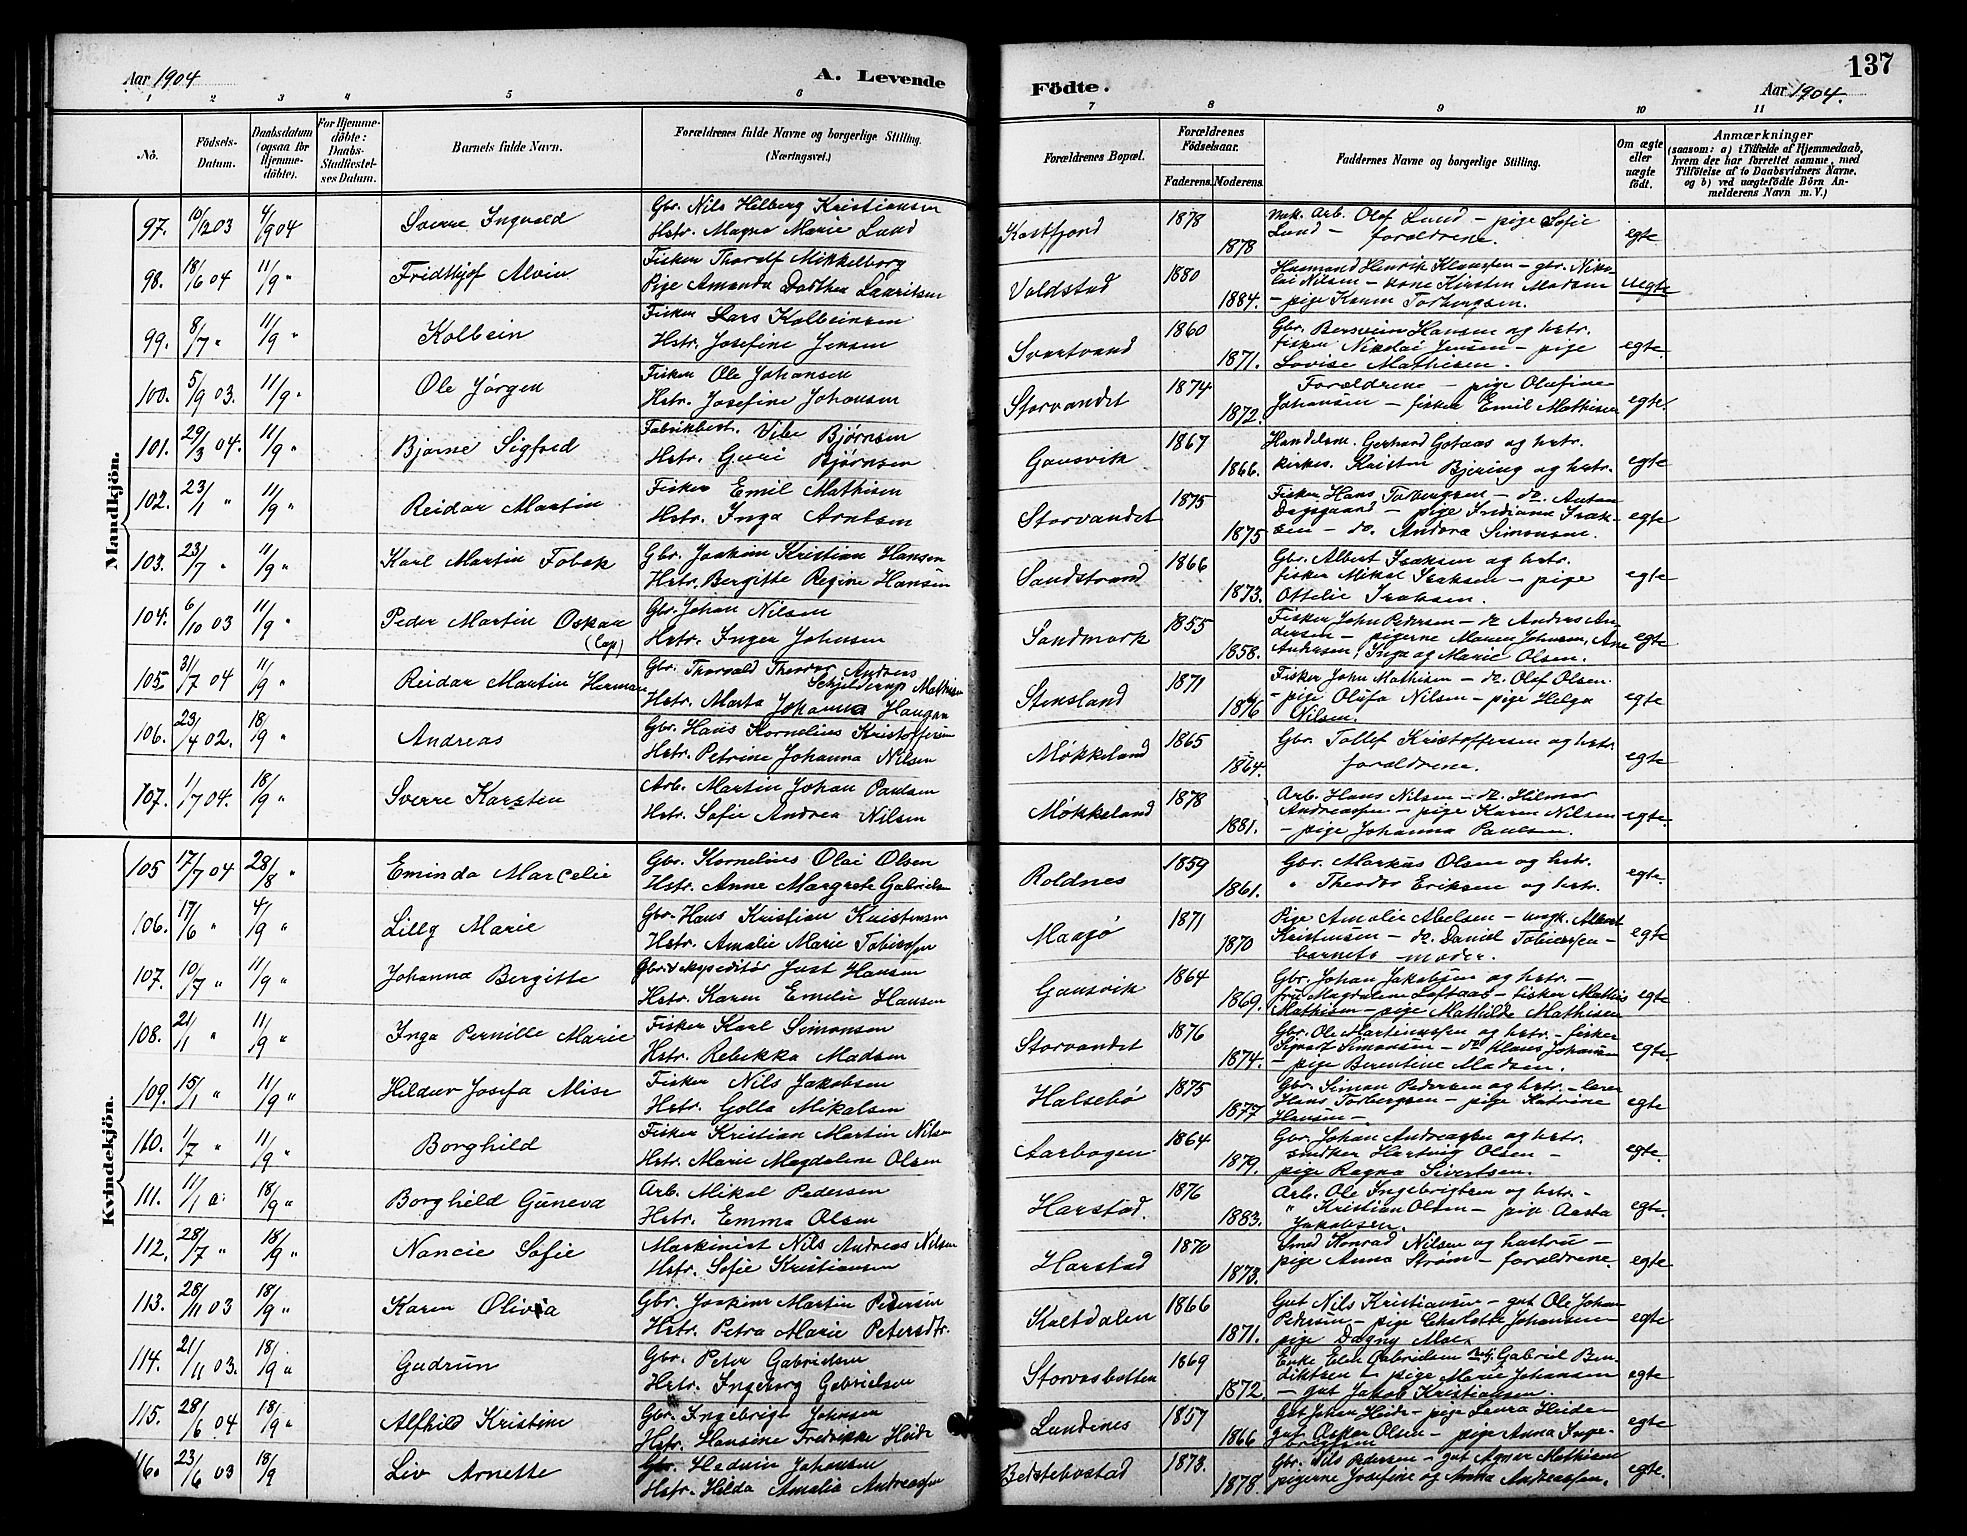 Aar 1904
A. Levende
Födte.
Aar 1904.
137
1 2 3 4 5 6 7 8 9 10 11
No.
Födsels-Datum.
Daabsdatum (ogsaa for Hjemme-döbte).
For Hjemme-döbte: Daabs-Stadfæstel-ses Datum.
Barnets fulde Navn.
Forældrenes fulde Navne og borgerlige Stilling. (Næringsvei.)
Forældrenes Bopæl.
Forældrenes Födselsaar.
Faderens. Moderens.
Faddernes Navne og borgerlige Stilling.
Om ægte eller uægte födt.
Anmærkninger
(saasom: a) i Tilfælde af Hjemmedaab, hvem der har forrettet samme, med Tilföielse af to Daabsvidners Navne, og b) ved uægtefödte Börn An-melderens Navn m. V.)
Mandkjön.
97. 10/12 03 4/9 04 Sverre Ingvald Gbr. Nils Hilberg Kristiansen
Hstr. Magna Marie Lund
Kastfjord 1878 1878
Mek. Arb. Olaf Lund – pige Sofie
Lund – forældrene.
egte
98. 18/6 04 11/9 " Fridthjof Alvin Fisker Thoralf Mikkelborg
Pige Amanda Dorthea Lauritsen
Voldstad 1880 1884.
Husmand Henrik Klaussen – gbr. Niko-
lai Nilsen – kone Kirsten Madsen
– pige Karen Torbergsen.
uegte
99. 8/7 " 11/9 " Kolbein Fisker Lars Kolbeinsen
Hstr. Josefine Jensen
Svartvand 1860 1871.
Gbr. Bersvein Hansen og hstr.
fisker Nikolai Jensen – pige
Lovise Mathisen.
egte.
100. 5/9 03. 11/9 " Ole Jörgen Fisker Ole Johansen
Hstr. Josefine Johansen
Storvandet 1874 1872.
Forældrene – pige Olefine
Johansen – fisker Emil Mathisen
egte.
101. 29/3 04. 11/9 " Bjarne Sigford Fabrikbest. Vibe Bjørnsen
Hstr. Guri Bjørnsen
Gausvik 1867 1866.
Handelsm. Gerhard Gotaas og hstr.
kirkes. Kristen Bjering og hstr.
egte
102. 23/1 " 11/9 " Reidar Martin Fisker Emil Mathisen
Hstr. Inga Arntsen
Storvandet 1875 1875
Fisker Hans Torbergsen – do. Anton
Dagsgaard – pige Indiana Isak-
sen – do. Andora Simonsen.
egte
103. 23/7 " 11/9 " Karl Martin Tobek Gbr. Joakim Kristian Hansen
Hstr. Bergitte Regine Hansen
Sandstrand 1866 1873.
Gbr. Albert Isaksen og hstr.
fisker Mikal Isaksen – pige
Ottelie Isaksen.
egte
104. 6/10 03 11/9 " Peder Martin Oskar
(Lap)
Gbr. Johan Nilsen
Hstr. Inger Johnsen
Sandmark 1855 1858.
Fisker John Pedersen – do Andreas An-
dersen – pigerne Maren Johnsen, Ane
Andersen, Inga og Marie Olsen.
egte
105 31/7 04 11/9 " Reidar Martin Herman Gbr. Thorvald Theodor Andreas
Schjelderup Mathisen
Hstr. Marta Johanna Haugan
Stensland 1871 1876
Fisker John Mathisen – do. Olaf Olsen
– pige Olufa Nilsen – pige Helga
Nilsen.
egte
106. 23/4 02. 18/9 " Andreas Gbr. Hans Kornelius Kristoffersen
Hstr. Petrine Johanna Nilsen
Møkkeland 1865 1864.
Gbr. Tollef Kristoffersen og hstr
forældrene.
egte
107. 1/7 04. 18/9 " Sverre Karsten Arb. Martin Johan Paulsen
Hstr. Sofie Andrea Nilsen
Møkkeland 1878 1881.
Arb. Hans Nilsen – do. Hilmar
Andreassen – pige Karen Nilsen
– pige Johanna Paulsen.
egte.
Kvindekjön.
105 17/7 04 28/8 " Eminda Marcelie Gbr. Kornelius Olai Olsen
Hstr. Anne Margrete Gabrielsen
Roldnes 1859 1861.
Gbr. Markus Olsen og hstr.
" Theodor Eriksen og hstr.
egte.
106. 17/6 " 4/9 " Lilly Marie Gbr. Hans Kristian Kristensen
Hstr. Amalie Marie Tobiassen
Maajø 1871 1870
Pige Amalie Abelsen – ungk. Albert
Kristensen – do. Daniel Tobiassen –
barnets moder.
egte
107. 10/7 " 11/9 " Johanna Bergitte Gbr. & expeditör Just Hansen
Hstr. Karen Emelie Hansen
Gausvik 1864 1869.
Gbr. Johan Jakobsen og hstr. –
fru Magdalene Loftaas – fisker Mathis
Mathisen – pige Mathilde Mathisen
egte
108. 21/1 " 11/9 " Inga Pernille Marie Fisker Karl Simonsen
Hstr. Rebekka Madsen
Storvandet 1876 1874.
Gbr. Ole Martinussen og hstr. – fisker
Sivert Simonsen – do Klaus Johansen
– pige Berentine Madsen.
egte
109. 15/1 " 11/9 " Hildur Josefa Mise Fisker Nils Jakobsen
Hstr. Golla Mikalsen
Halsebø 1875 1877
Gbr. Simon Pedersen og hstr. – lærer
Hans Torbergsen – pige Katrine
Hansen –
egte
110. 1/7 " 11/9 " Borghild Fisker Kristian Martin Nilsen
Hstr. Marie Magdalene Olsen
Aarbogen 1864 1879.
Gbr. Johan Andreassen og hstr.
snedker Hertvig Olsen –
pige Ragna Sivertsen.
egte.
111. 11/1 18/9 " Borghild Guneva Arb. Mikal Pedersen
Hstr. Emma Olsen
Harstad. 1876 1883.
Arb. Ole Ingebrigtsen og hstr. –
" Kristian Olsen – pige Aasta
Jakobsen.
egte.
112. 28/7 " 18/9 " Nancie Sofie Maskinist Nils Andreas Nilsen
Hstr. Sofie Kristiansen
Harstad 1870 1873.
Smed Konrad Nilsen og hustru –
pige Anna Strøm – forældrene.
egte
113. 28/11 03 18/9 " Karen Olivia Gbr. Joakim Martin Pedersen
Hstr. Petra Marie Petersdtr.
Kaltdalen 1866 1871.
Gut Nils Kristiansen – gut Ole Johan
Pedersen – pige Charlotte Johansen –
pige Dagny Moe.
egte
114. 21/11 03. 18/9 " Gudrun Gbr. Peter Gabrielsen
Hstr. Ingeborg Gabrielsen
Storvasbotten 1869 1872
Enke Elen Gabrielsen og Gabriel Ben-
diktsen – pige Marie Johansen
– gut Jakob Kristiansen.
egte
115. 28/6. 04 18/9 " Alfhild Kristine Gbr. Ingebrigt Johnsen
Hstr. Hansine Fredrikke Heide
Lundenes 1857 1866
Gut Johan Heide – pige Laura Heide –
gut Oskar Olsen – pige Anna Inge-
brigtsen
egte
116. 23/6 03 18/9 Liv Arnette Gbr. Hedvin Johansen
Hstr. Hilda Amalia Andreassen
Beistebostad 1873. 1878.
Gbr. Nils Pedersen – gut Agner Mathisen
pigerne Josefine og Anna Andreassen.
egte.